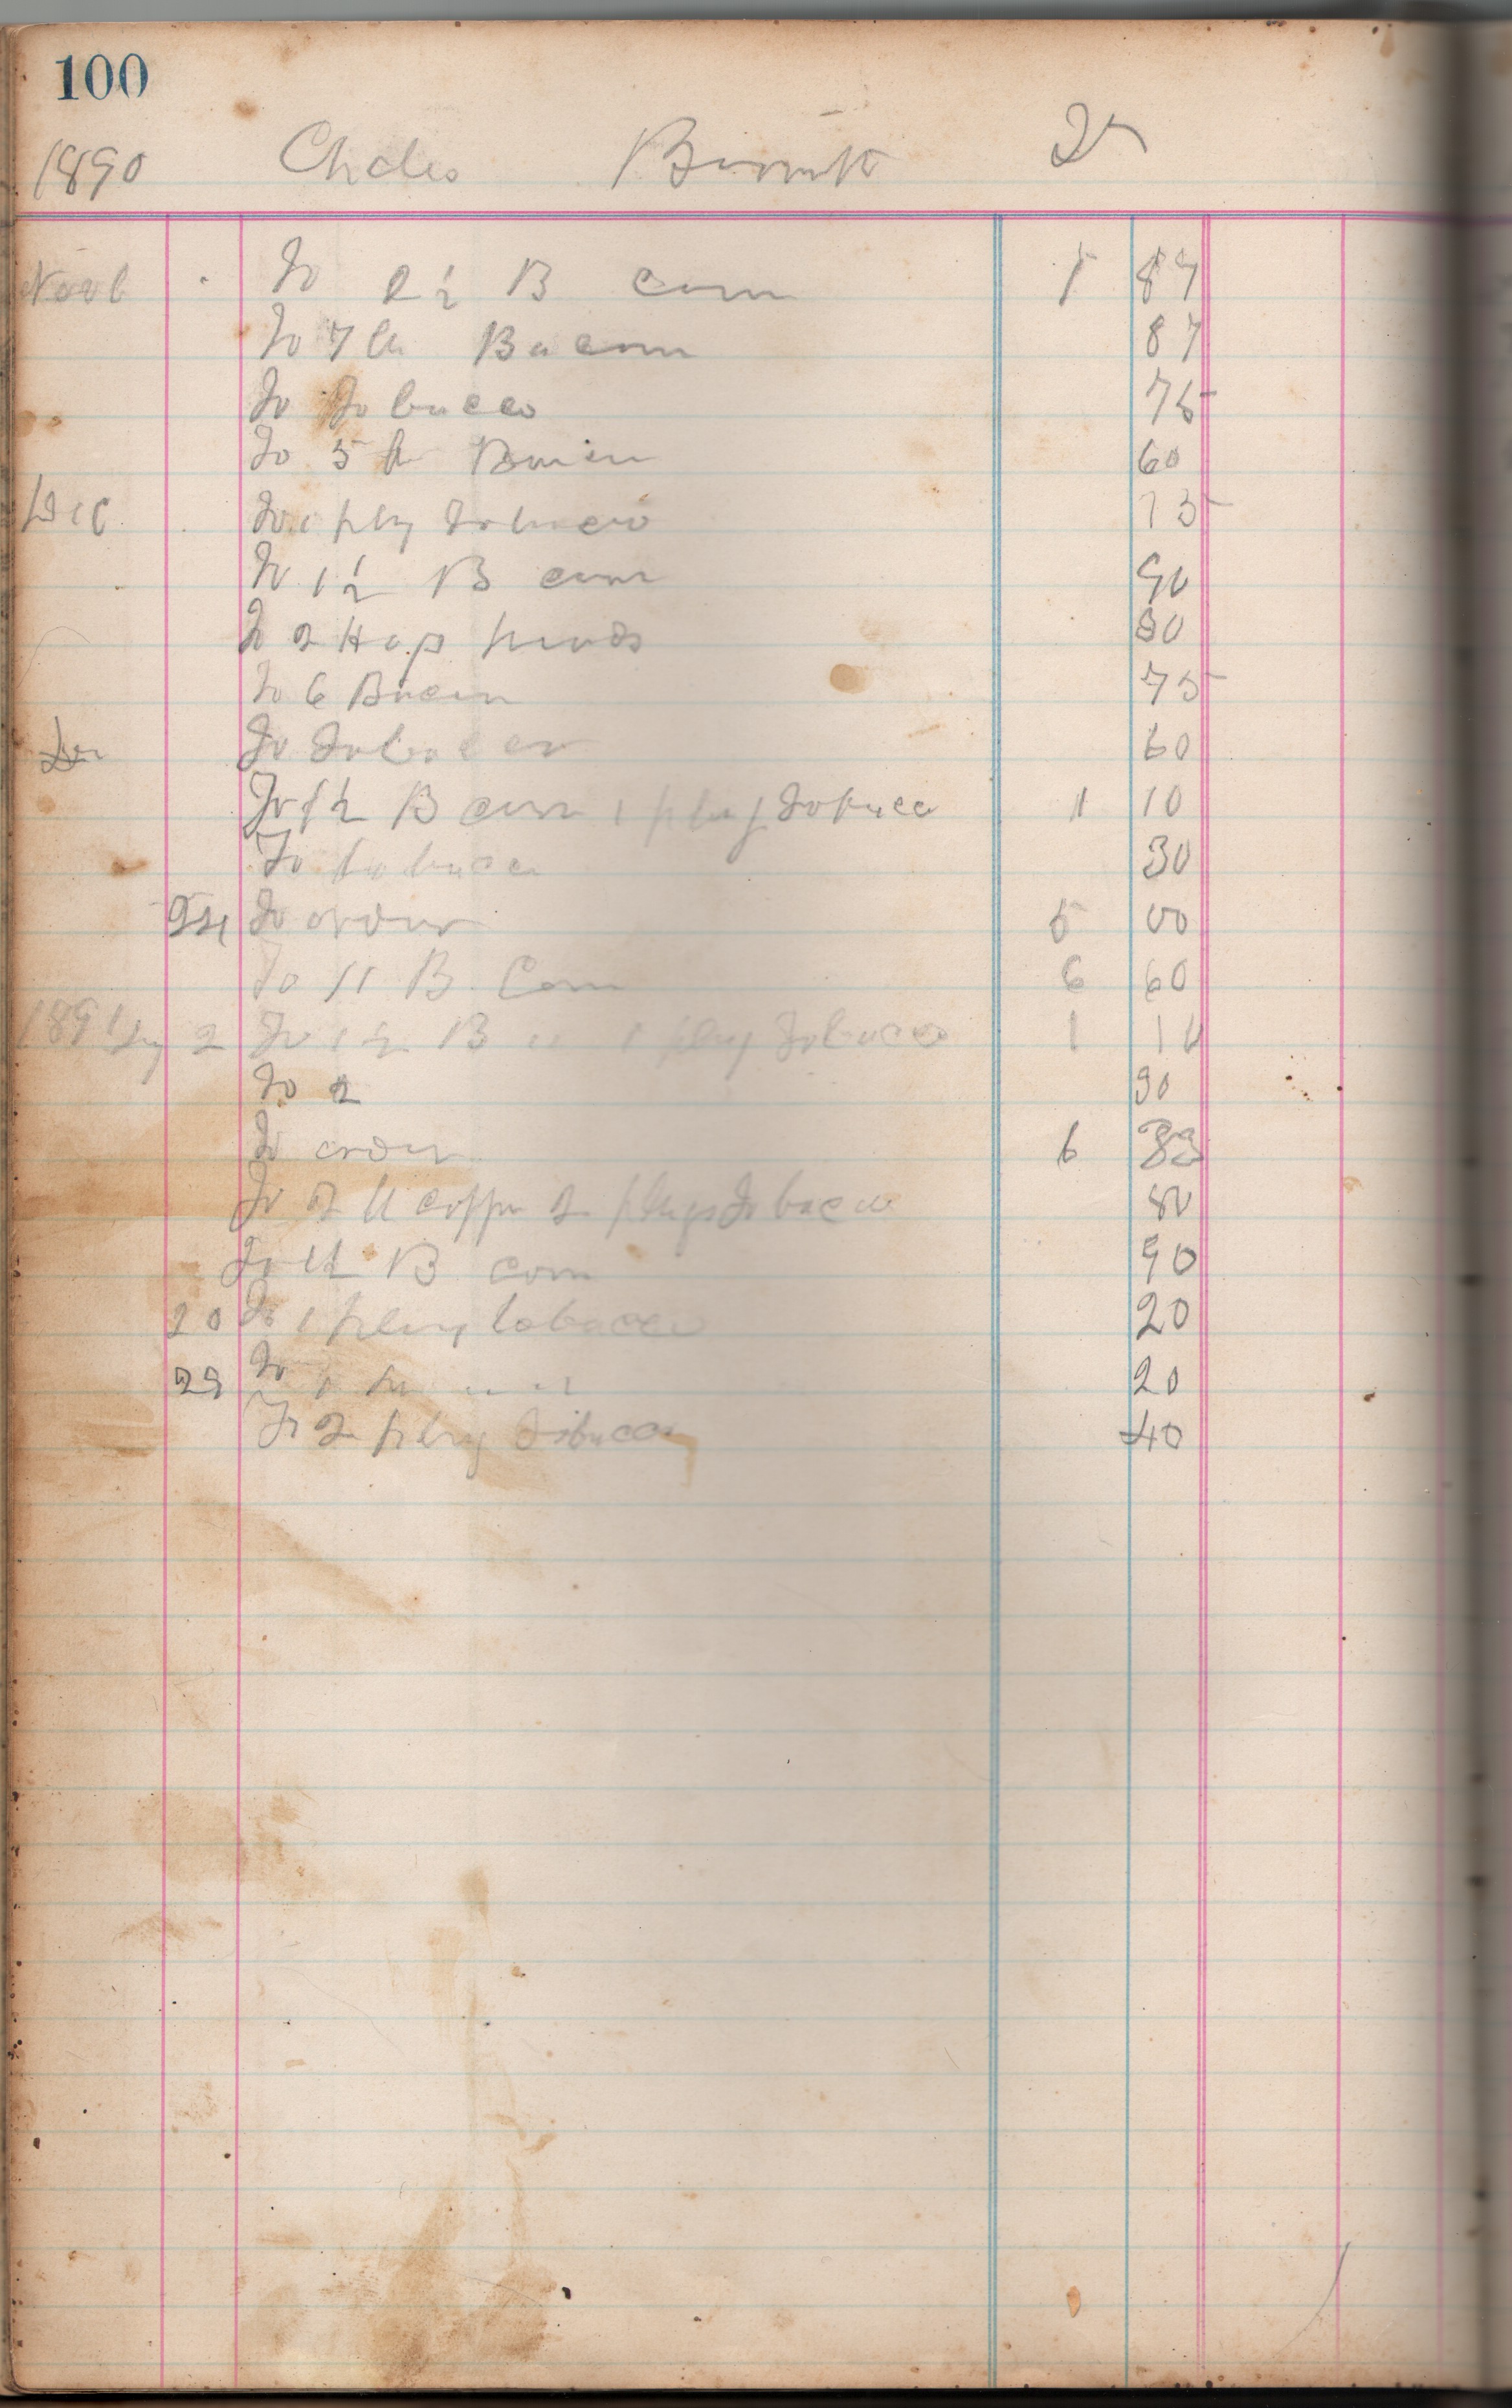 100
1890 Dr
Novb To 2½ B corn 1 87
To 7 lb Bacon 87
To Tobacco 75
To 5 lb Bacon 60
Dec To 1 plug Tobacco 15
To 1½ B corn 90
To 2 Hog 30
To 6 Bacon 75
To Tobacco 60
To 1½ B corn 1 plug Tobacco 1 10
To tobacco 30
24 To order 5 00
To 11 B Corn 6 60
1891 Jany 2 To 1½ B " 1 plug Tobacco 1 10
To 2 30
To order 6 33
To 2 lb coffee 2 plugs Tobacco 80
To 1½ B corn 90
20 To 1 plug tobacco 20
29 To 1 " " 20
To 2 plug Tobacco 40